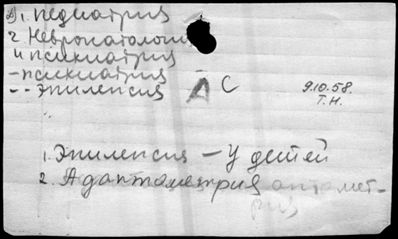 1. Педиатрия
2 Невропатологи
и психиатрия
- психиатрия
- - эпилепсия
А С
9.10.58.
Т.Н.
1. Эпилепсия - У детей
2. Адаптометрия